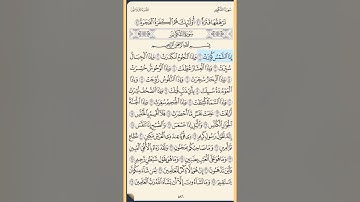 سُورَةُ التَّكْوِيرِ
تَرْهَقُهَا قَتَرَةٌ ٤١ أُوْلَٰٓئِكَ هُمُ ٱلْكَفَرَةُ ٱلْفَجَرَةُ ٤٢
سُورَةُ التَّكْوِيرِ
بِسْمِ ٱللَّهِ ٱلرَّحْمَٰنِ ٱلرَّحِيمِ
إِذَا ٱلشَّمْسُ كُوِّرَتْ ١ وَإِذَا ٱلنُّجُومُ ٱنكَدَرَتْ ٢ وَإِذَا ٱلْجِبَالُ
سُيِّرَتْ ٣ وَإِذَا ٱلْعِشَارُ عُطِّلَتْ ٤ وَإِذَا ٱلْوُحُوشُ حُشِرَتْ
٥ وَإِذَا ٱلْبِحَارُ سُجِّرَتْ ٦ وَإِذَا ٱلنُّفُوسُ زُوِّجَتْ ٧ وَإِذَا
ٱلْمَوْءُۥدَةُ سُئِلَتْ ٨ بِأَيِّ ذَنۢبٍ قُتِلَتْ ٩ وَإِذَا ٱلصُّحُفُ نُشِرَتْ
١٠ وَإِذَا ٱلسَّمَآءُ كُشِطَتْ ١١ وَإِذَا ٱلْجَحِيمُ سُعِّرَتْ ١٢ وَإِذَا
ٱلْجَنَّةُ أُزْلِفَتْ ١٣ عَلِمَتْ نَفْسٌ مَّآ أَحْضَرَتْ ١٤ فَلَآ أُقْسِمُ بِٱلْخُنَّسِ
١٥ ٱلْجَوَارِ ٱلْكُنَّسِ ١٦ وَٱلَّيْلِ إِذَا عَسْعَسَ ١٧ وَٱلصُّبْحِ إِذَا تَنَفَّسَ
١٨ إِنَّهُۥ لَقَوْلُ رَسُولٍ كَرِيمٍ ١٩ ذِي قُوَّةٍ عِندَ ذِي ٱلْعَرْشِ مَكِينٍ
٢٠ مُّطَاعٍ ثَمَّ أَمِينٍ ٢١ وَمَا صَاحِبُكُم بِمَجْنُونٍ ٢٢ وَلَقَدْ رَءَاهُ بِٱلْأُفُقِ ٱلْمُبِينِ
٢٣ وَمَا هُوَ عَلَى ٱلْغَيْبِ بِضَنِينٍ ٢٤ وَمَا هُوَ بِقَوْلِ شَيْطَٰنٍ رَّجِيمٍ
٢٥ فَأَيْنَ تَذْهَبُونَ ٢٦ إِنْ هُوَ إِلَّا ذِكْرٌ لِّلْعَٰلَمِينَ ٢٧ لِمَن شَآءَ مِنكُمْ أَن
يَسْتَقِيمَ ٢٨ وَمَا تَشَآءُونَ إِلَّآ أَن يَشَآءَ ٱللَّهُ رَبُّ ٱلْعَٰلَمِينَ ٢٩
٥٨٦